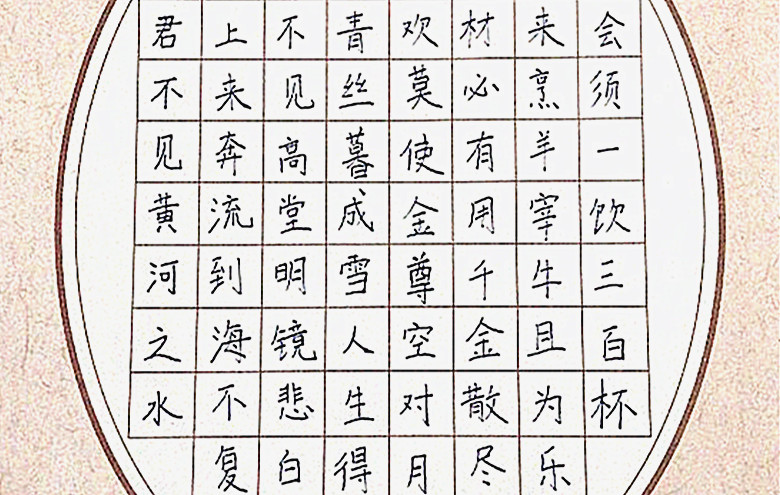 君不见黄河之水
上来奔流到海不复
不见高堂明镜悲白
青丝暮成雪人生得
欢莫使金尊空对月
材必有用千金散尽
来烹羊宰牛且为乐
会须一饮三百杯